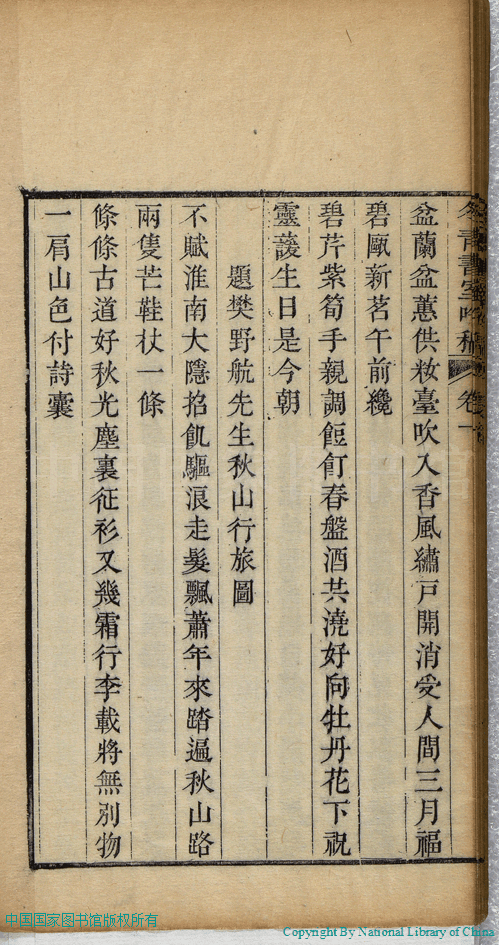 冬青書室吟稿 卷一
盆蘭盆蕙供妝臺吹入香風繡戶開消受人間三月福
碧甌新茗午前纔
碧芹紫筍手親調飣餖春盤酒共澆好向牡丹花下祝
靈護生日是今朝
題樊野航先生秋山行旅圖
不賦淮南大隱招飢驅浪走髮飄蕭年來踏遍秋山路
兩隻芒鞋杖一條
條條古道好秋光塵裏征衫又幾霜行李載將無別物
一肩山色付詩囊
中国国家图书馆版权所有
Copyright By National Library of China